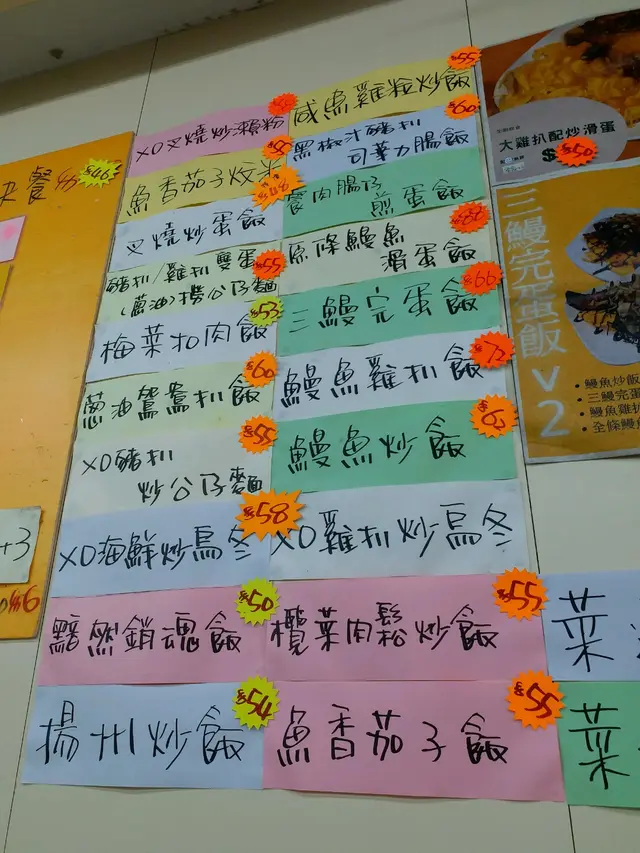 餐
$46
+3
$6
XO叉燒炒瀨粉
$55
魚香茄子炆米
叉燒炒蛋飯
$48
豬扒/雞扒雙蛋
(蔥油)撈公仔麵
$55
梅菜扣肉飯
$53
蔥油鴛鴦扒飯
$60
XO豬扒
炒公仔麵
$55
XO海鮮炒烏冬
$58
黯然銷魂飯
$50
揚州炒飯
$54
咸魚雞粒炒飯
$55
黑椒汁豬扒
司華力腸飯
$60
餐肉腸仔
煎蛋飯
原條鰻魚
滑蛋飯
$68
三鰻完蛋飯
$66
鰻魚雞扒飯
$72
鰻魚炒飯
XO雞扒炒烏冬
欖菜肉鬆炒飯
$55
魚香茄子飯
$55
大雞扒配炒滑蛋
$50
三鰻完蛋飯V2
• 鰻魚炒飯
• 三鰻完蛋
• 鰻魚雞扒
• 全條鰻魚
菜
菜